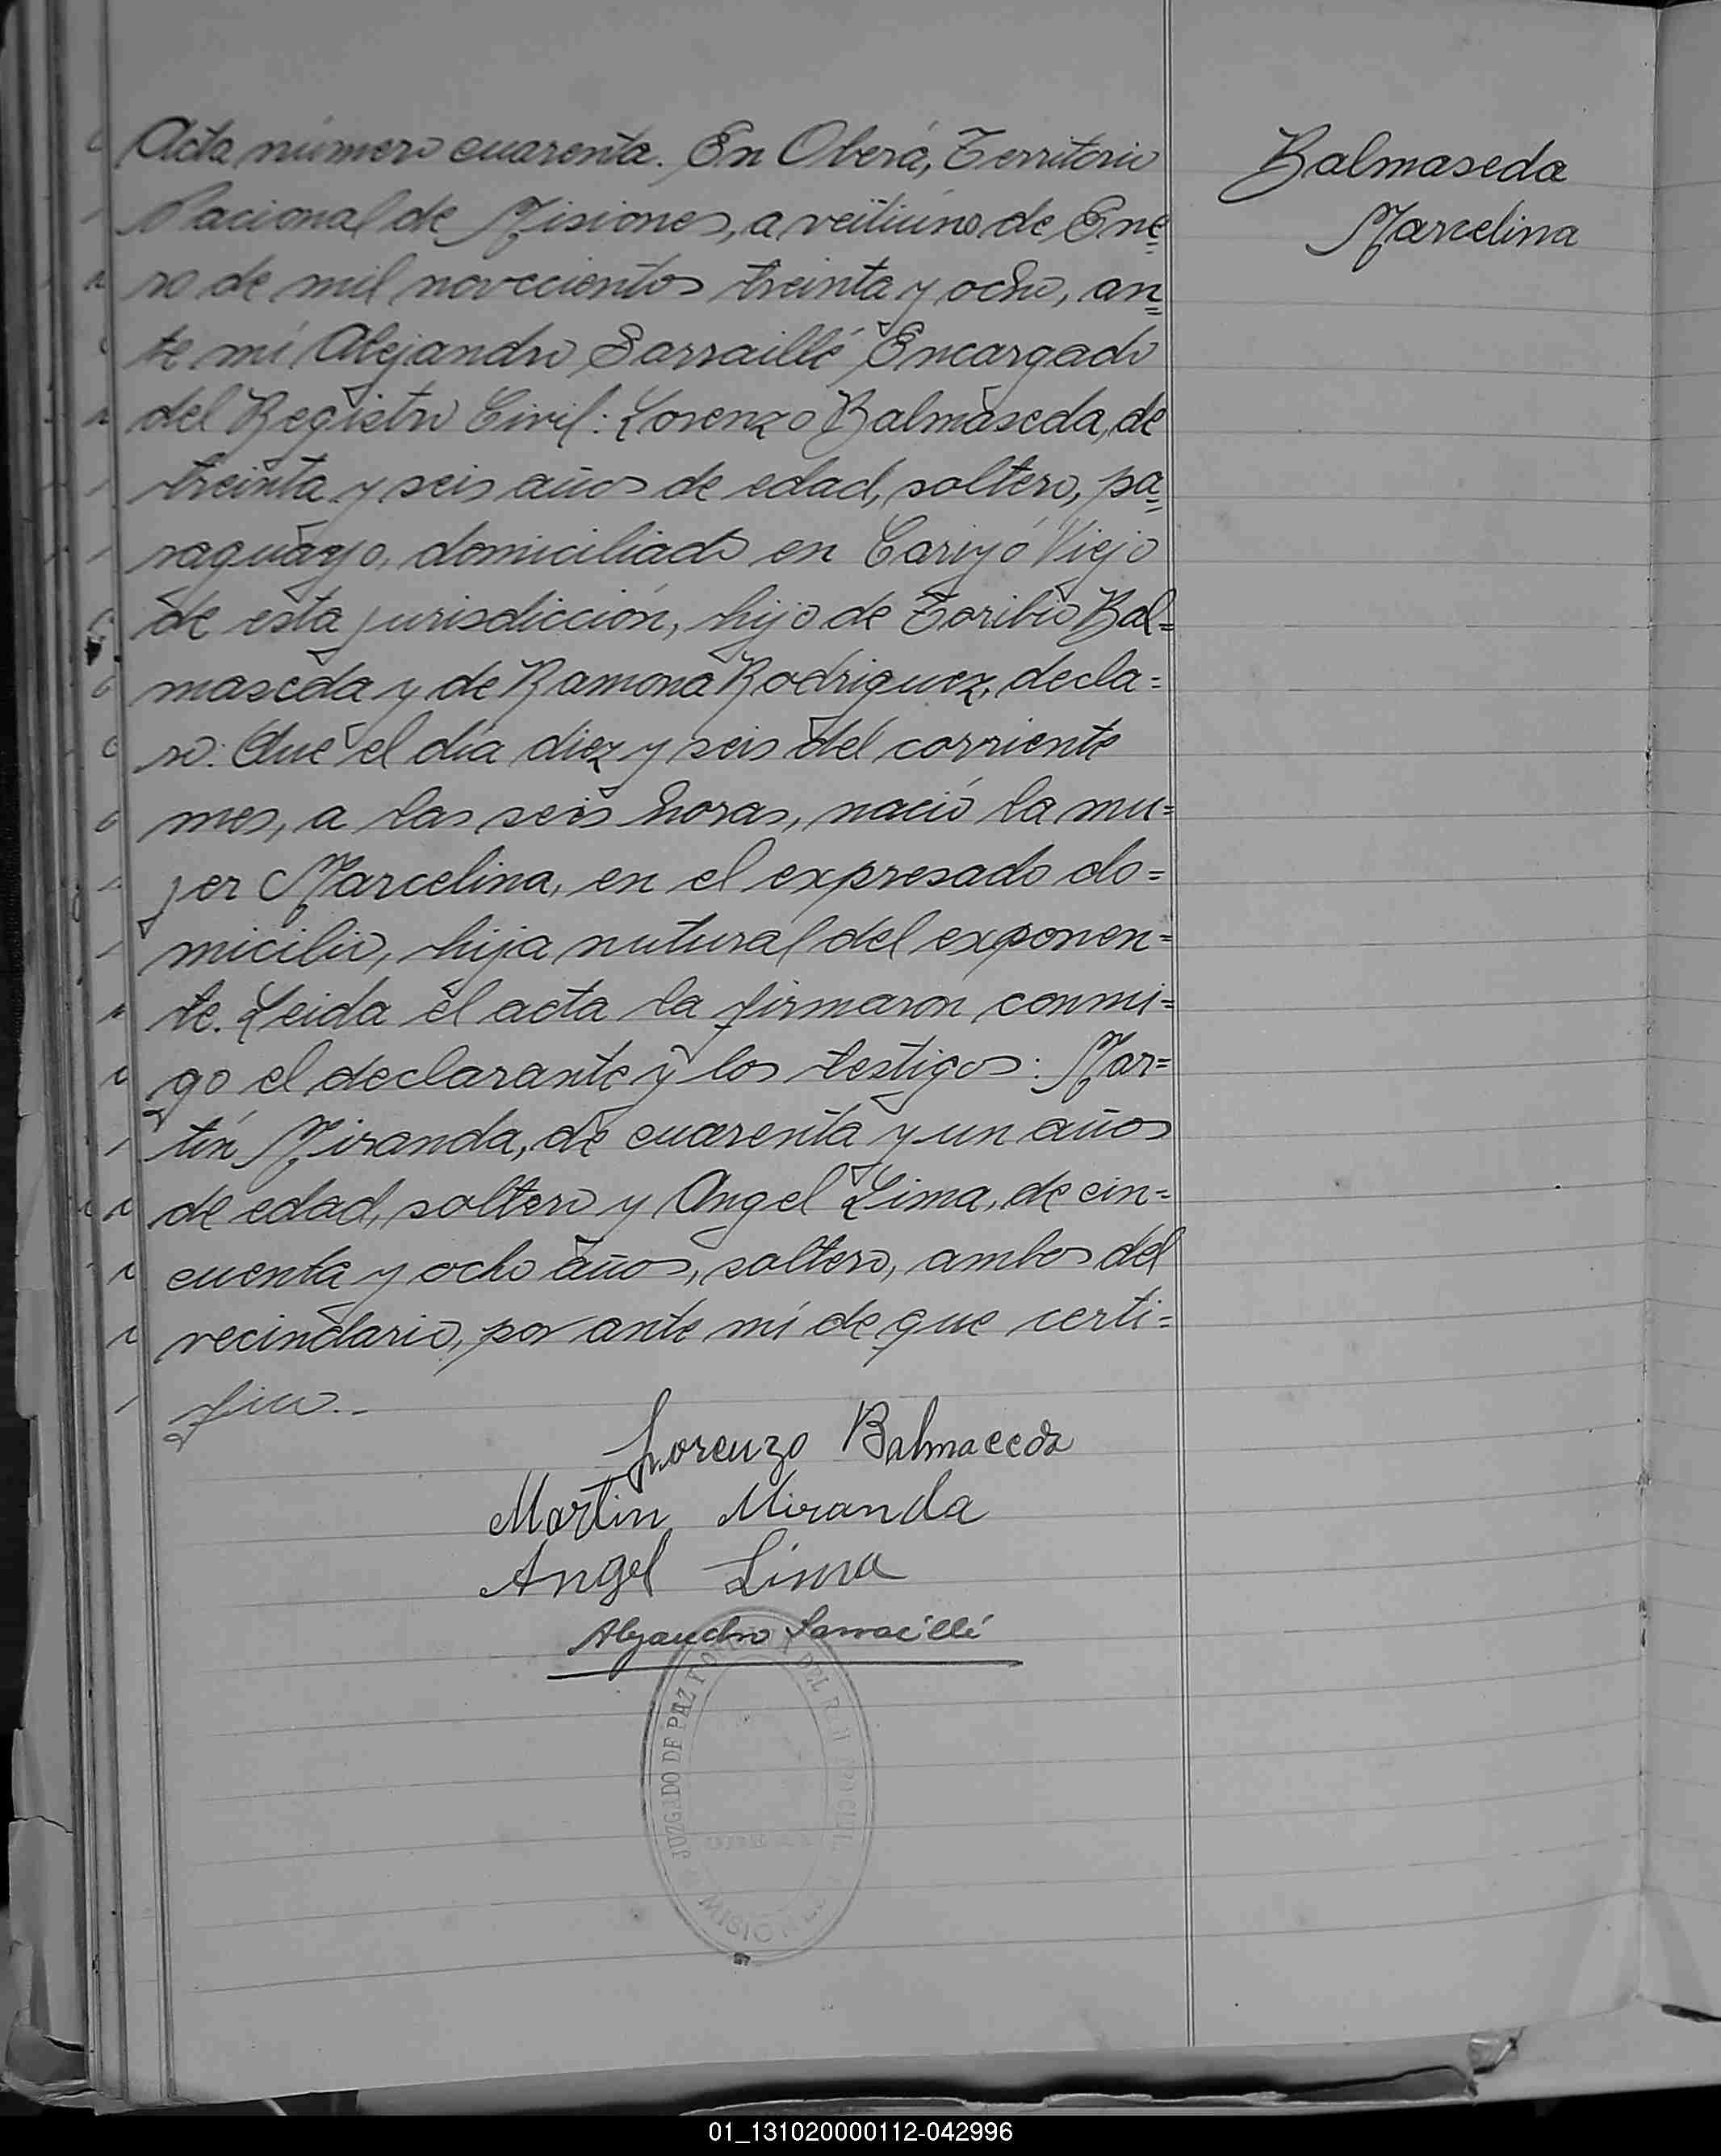 Acta número cuarenta. En Oberá, Territorio
Nacional de Misiones, a veitiuno de Ene=
ro de mil novecientos treinta y ocho, an=
te mí Alejandro Sarraillé Encargado
del Registro Civil: Lorenzo Balmaseda, de
treinta y seis años de edad, soltero, pa=
raguayo, domiciliado en Viejo
de esta jurisdicción, hijo de Toribio Bal=
maseda y de Ramona Rodriguez, decla=
ro: Que el día diez y seis del corriente
mes, a las seis horas, nació la mu=
jer Marcelina, en el expresado do=
micilio, hija nutural del exponen=
te. Leida el acta la firmaron conmi=
go el declarante y los testigos: Mar=
tín Miranda, de cuarenta y un años
de edad, soltero y Angel Lima, de cin=
cuenta y ocho años, soltero, ambos del
vecindario, por ante mí de que certi=
fico.-
Balmaseda
Marcelina
Lorenzo Balmaceda
Martin Miranda
Angel Lima
Alejandro Sarraillé
JUZGADO DE PAZ Y DEL
MISIONES
01_131020000112-042996